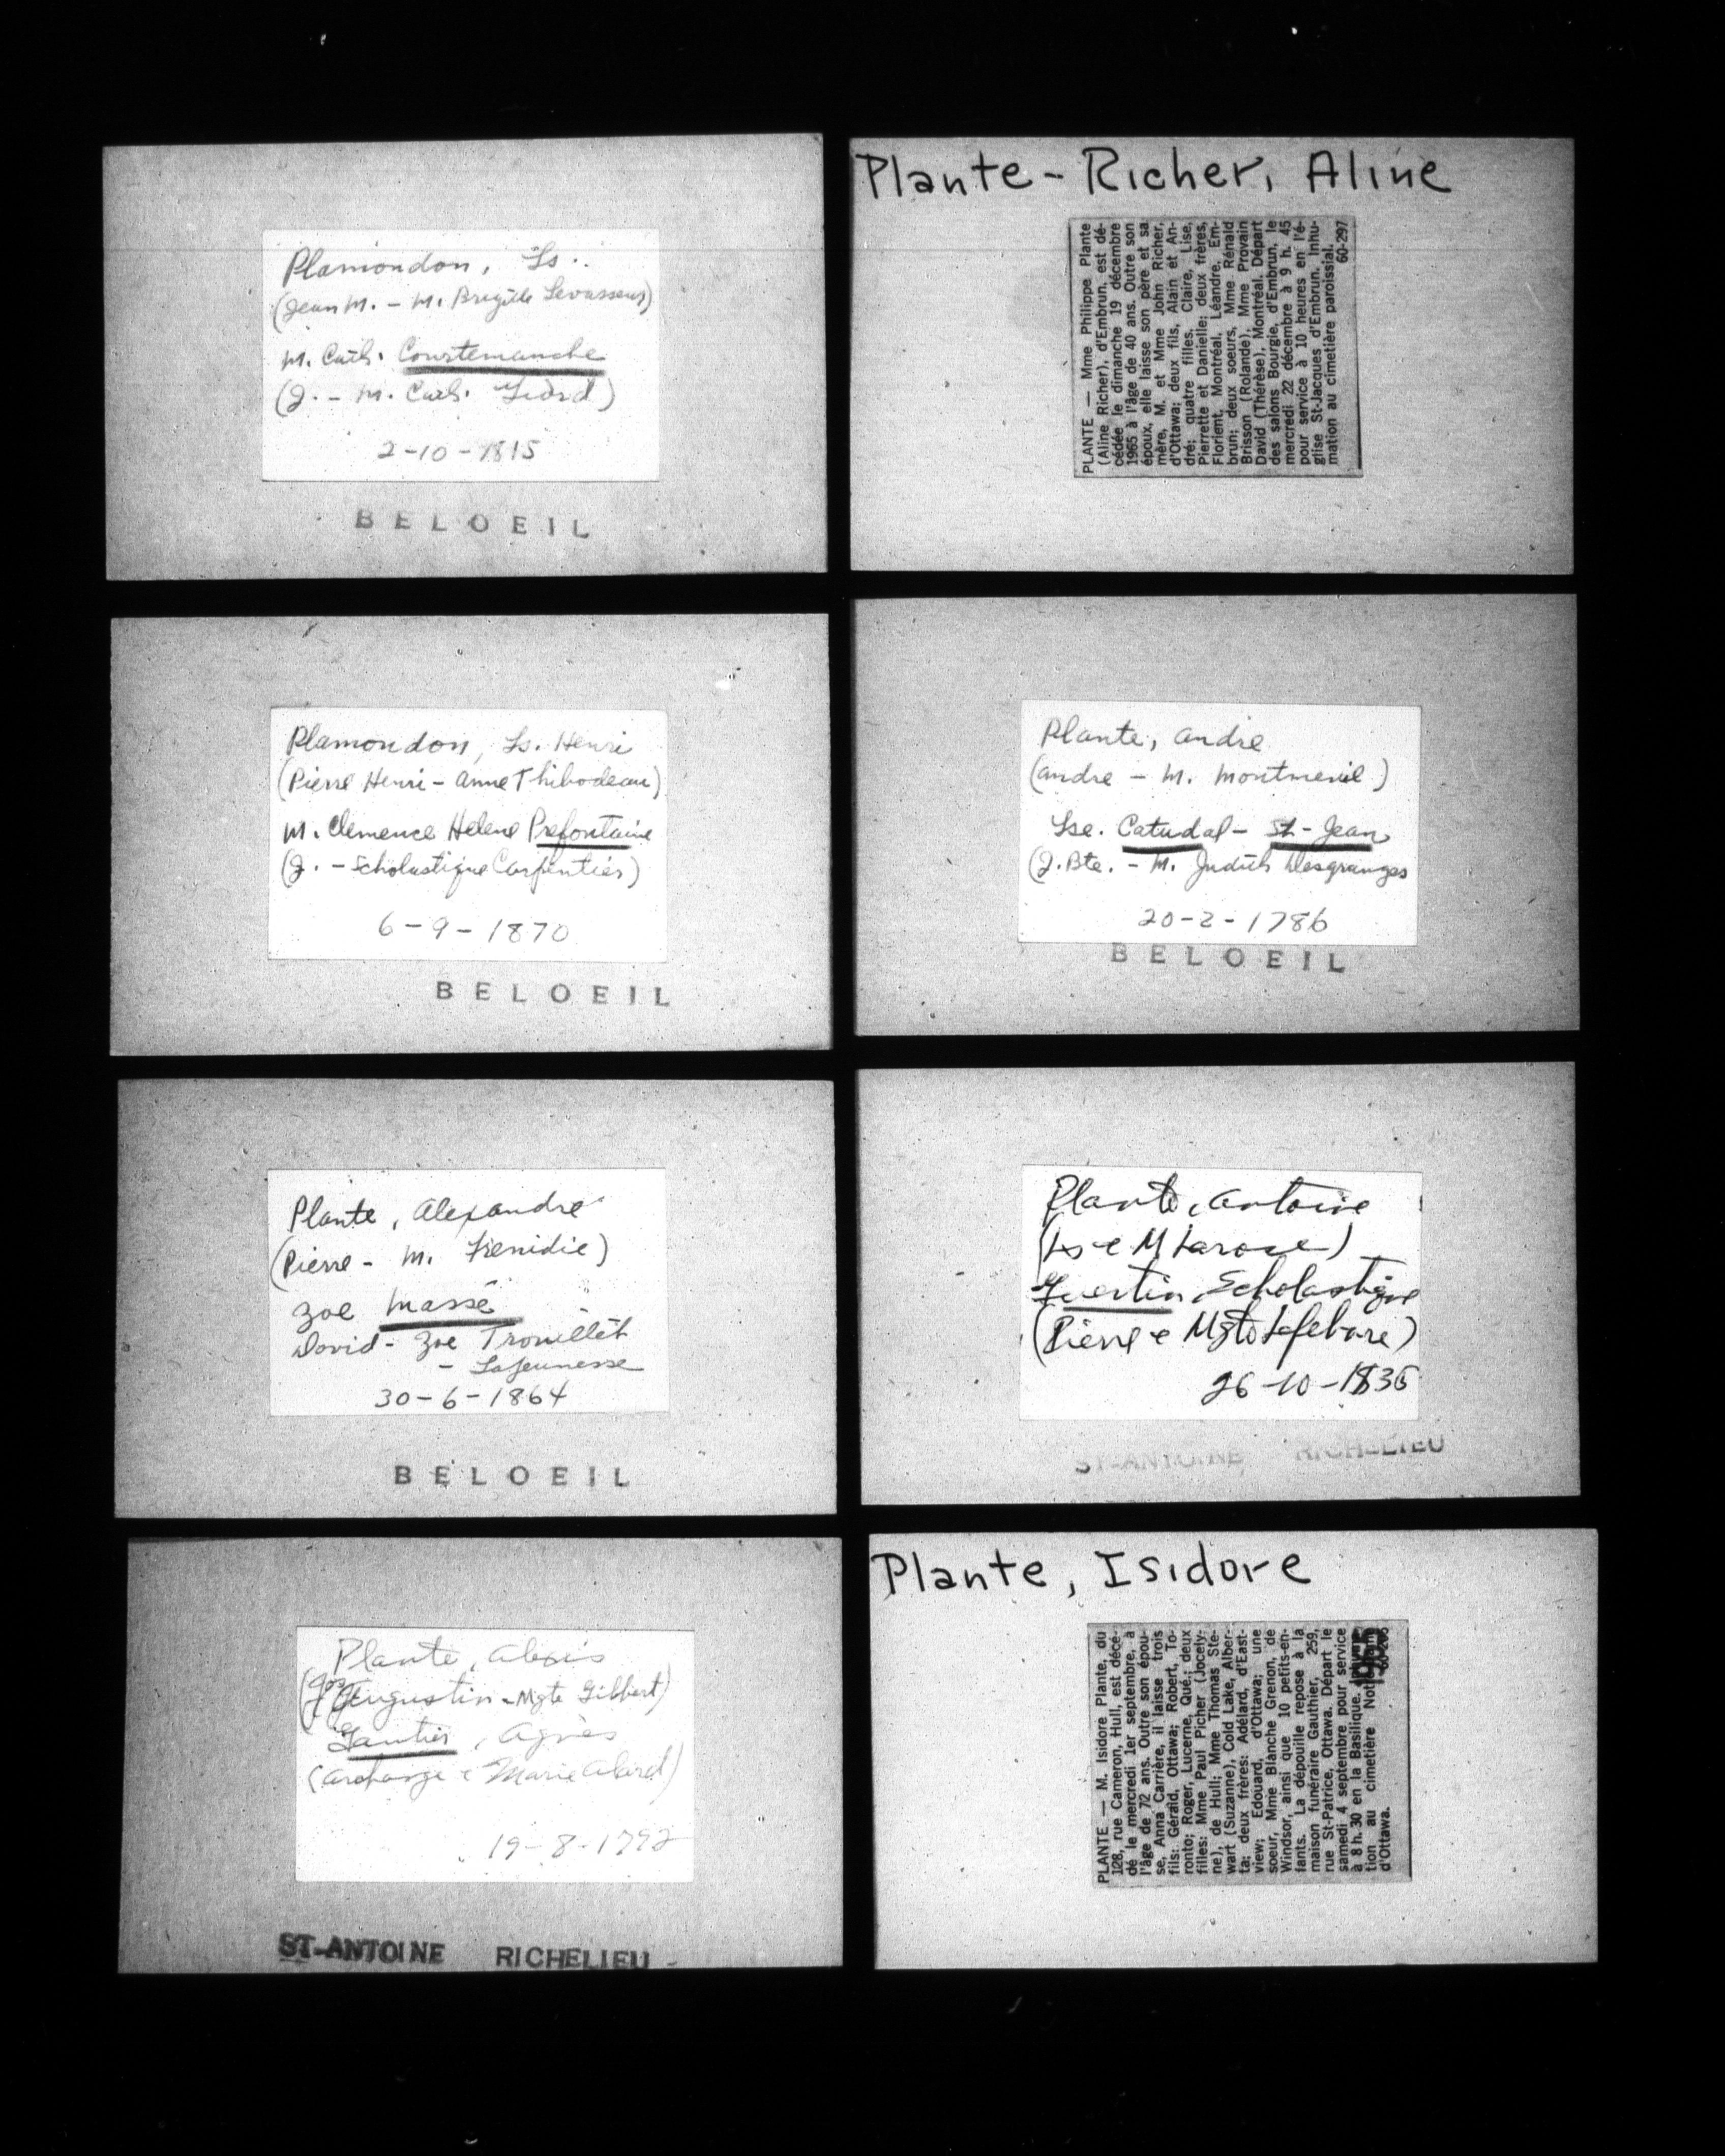 Plamondon, Ls.
(Jean M. - M. Brigitte Levasseur)
M. Cath. Courtemanche
(J. - M. Cath. Giard)
2-10-1815
BELOEIL
Plamondon, Ls. Henri
(Pierre Henri - Anne Thibodeau)
M. Clemence Helene Prefontaine
(J. - Scholastique Carpentier)
6-9-1870
BELOEIL
Plante, Alexandre
(Pierre - M.
Zoe Massé
David - Zoe Trouillet
- Lajeunesse
30-6-1864
BELOEIL
Plante, Alexis
(Jos Augustin - Mgte Gilbert)
Gautier, Agnès
(Archange e Marie Alard)
19-8-1792
ST-ANTOINE RICHELIEU
Plante-Richer, Aline
PLANTE — Mme Philippe Plante
(Aline Richer), d'Embrun, est dé-
cédée le dimanche 19 décembre
1965 à l'âge de 40 ans. Outre son
époux, elle laisse son père et sa
mère, M. et Mme John Richer,
d'Ottawa; deux fils, Alain et An-
dré; quatre filles, Claire, Lise,
Pierrette et Danielle; deux frères,
Florient, Montréal, Léandre, Em-
brun; deux soeurs, Mme Rénald
Brisson (Rolande), Mme Provain
David (Thérèse), Montréal. Départ
des salons Bourgie, d'Embrun, le
mercredi 22 décembre à 9 h. 45
pour service à 10 heures en l'é-
glise St-Jacques d'Embrun. Inhu-
mation au cimetière paroissial.
60-297
Plante, Andre
(Andre - M. Montmenil)
Lse. Catudal - St-Jean
(J. Bte. - M. Judith Desgranges
20-2-1786
BELOEIL
Plante, Antoine
(Ls e M Larose)
Guertin, Scholastique
(Pierre e Mgte Lefebvre)
26-10-1836
ST-ANTOINE RICHELIEU
Plante, Isidore
PLANTE — M. Isidore Plante, du
128, rue Cameron, Hull, est décé-
dé le mercredi 1er septembre, à
l'âge de 72 ans. Outre son épou-
se, Anna Carrière, il laisse trois
fils: Gérald, Ottawa; Robert, To-
ronto; Roger, Lucerne, Qué.; deux
filles: Mme Paul Picher (Jocely-
ne), de Hull; Mme Thomas Ste-
wart (Suzanne), Cold Lake, Alber-
ta; deux frères: Adélard, d'East-
view; Edouard, d'Ottawa; une
soeur, Mme Blanche Grenon, de
Windsor, ainsi que 10 petits-en-
fants. La dépouille repose à la
maison funéraire Gauthier, 259,
rue St-Patrice, Ottawa. Départ le
samedi 4 septembre pour service
à 8 h. 30 en la Basilique.
tion au cimetière
d'Ottawa.